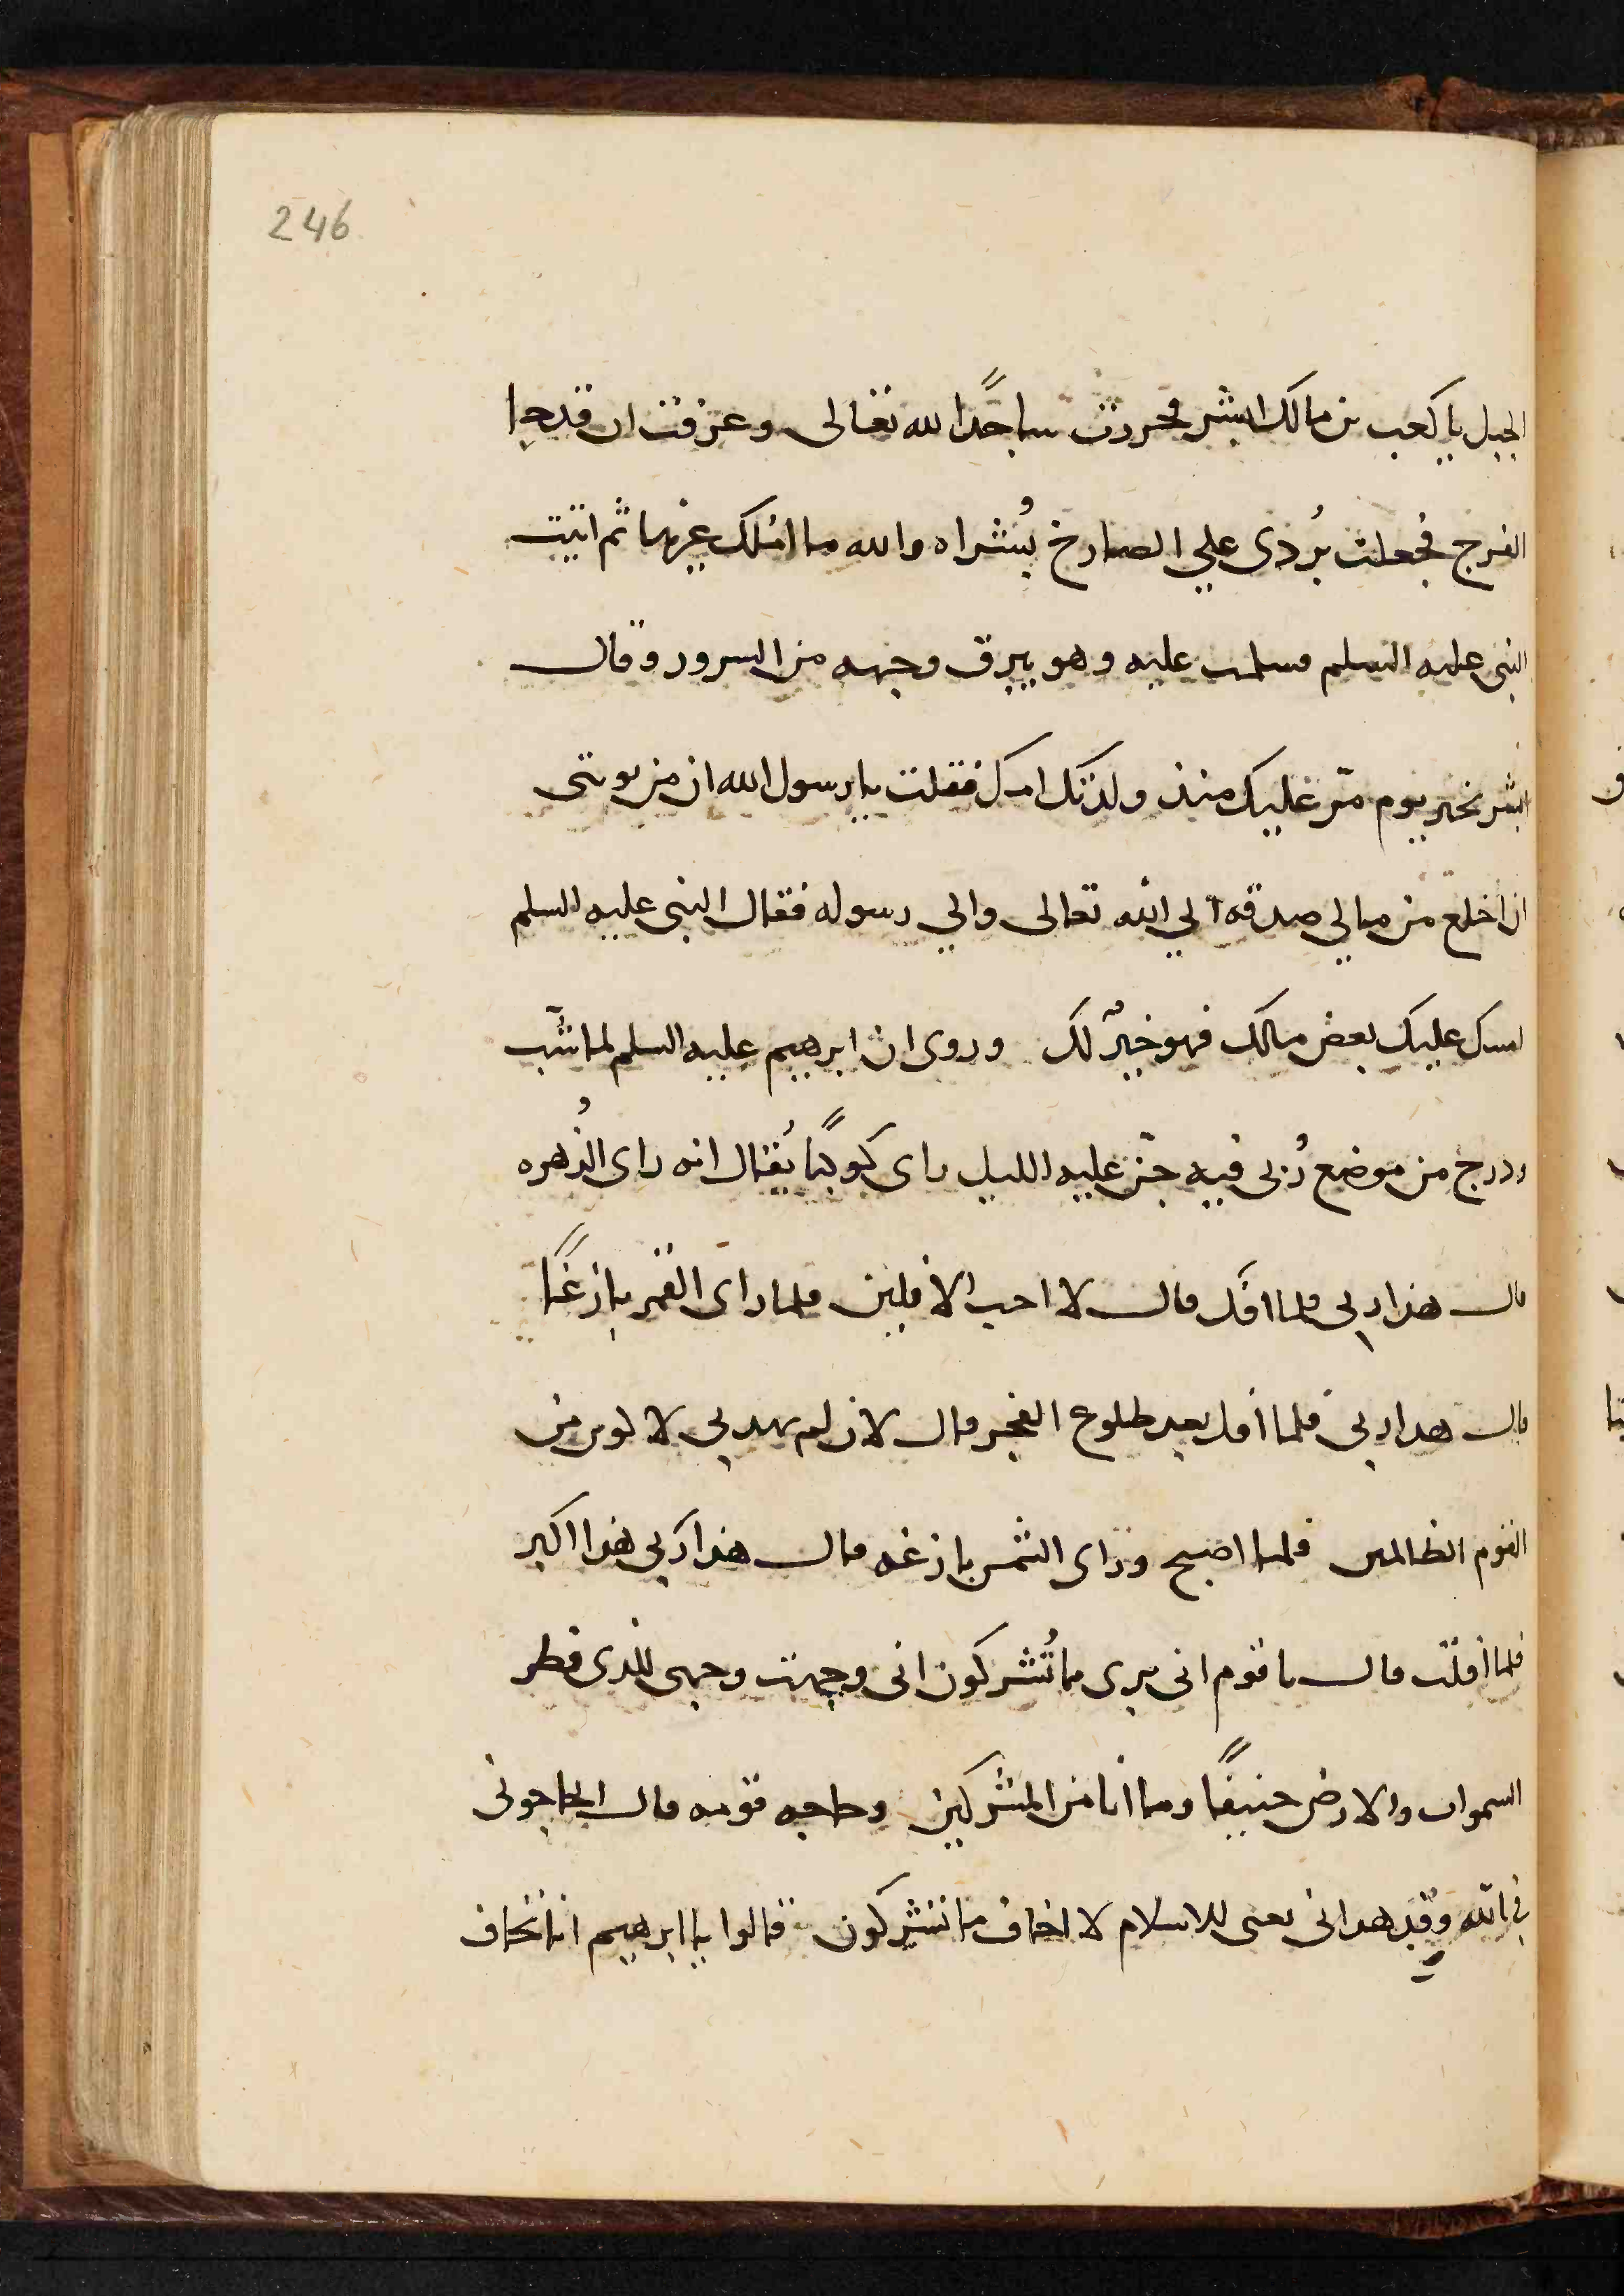 246
الجبل يا كعب بن مالك ابشر فخررت ساجدًا لله تعالى وعرفت ان قد جا
الفرج فجعلت بُردى علي الصارخ بُشراه والله ما املك غيرهما ثم اتيت
النبى عليه السلم فسلمت عليه وهو يبرق وجهه من السرور وقال
ابشر بخير يوم مرّ عليك منذ ولدتك امك فقلت يا رسول الله ان من توبتى
ان اخلع من مالي صدقه الي الله تعالى والي رسوله فقال النبى عليه السلم
امسك عليك بعض مالك فهو خيرٌ لك وروى ان ابرهيم عليه السلم لما شَبّ
ودرج من موضع رُبى فيه جنّ عليه الليل راى كوكبًا يُقال انه راى الزُهره
قال هذا ربي فلما افَل قال لا احب الافلين فلما راى القمر بازغًا
قال هذا ربي فلما افل بعد طلوع الفجر قال لان لم يهدني لاكونن من
القوم الظالمين فلما اصبح وراى الشمس بازغه قال هذا رَبي هذا اكبر
فلما افلت قال يا قوم انى برى مما تُشركون انى وجهت وجهى للذى فطر
السموات والارض حنيفًا وما انا من المشركين وحاجه قومه قال اتحاجونى
فى الله وقد هدانى يعنى للاسلام لا اخاف ما تشركون قالوا يا ابرهيم انا نخاف